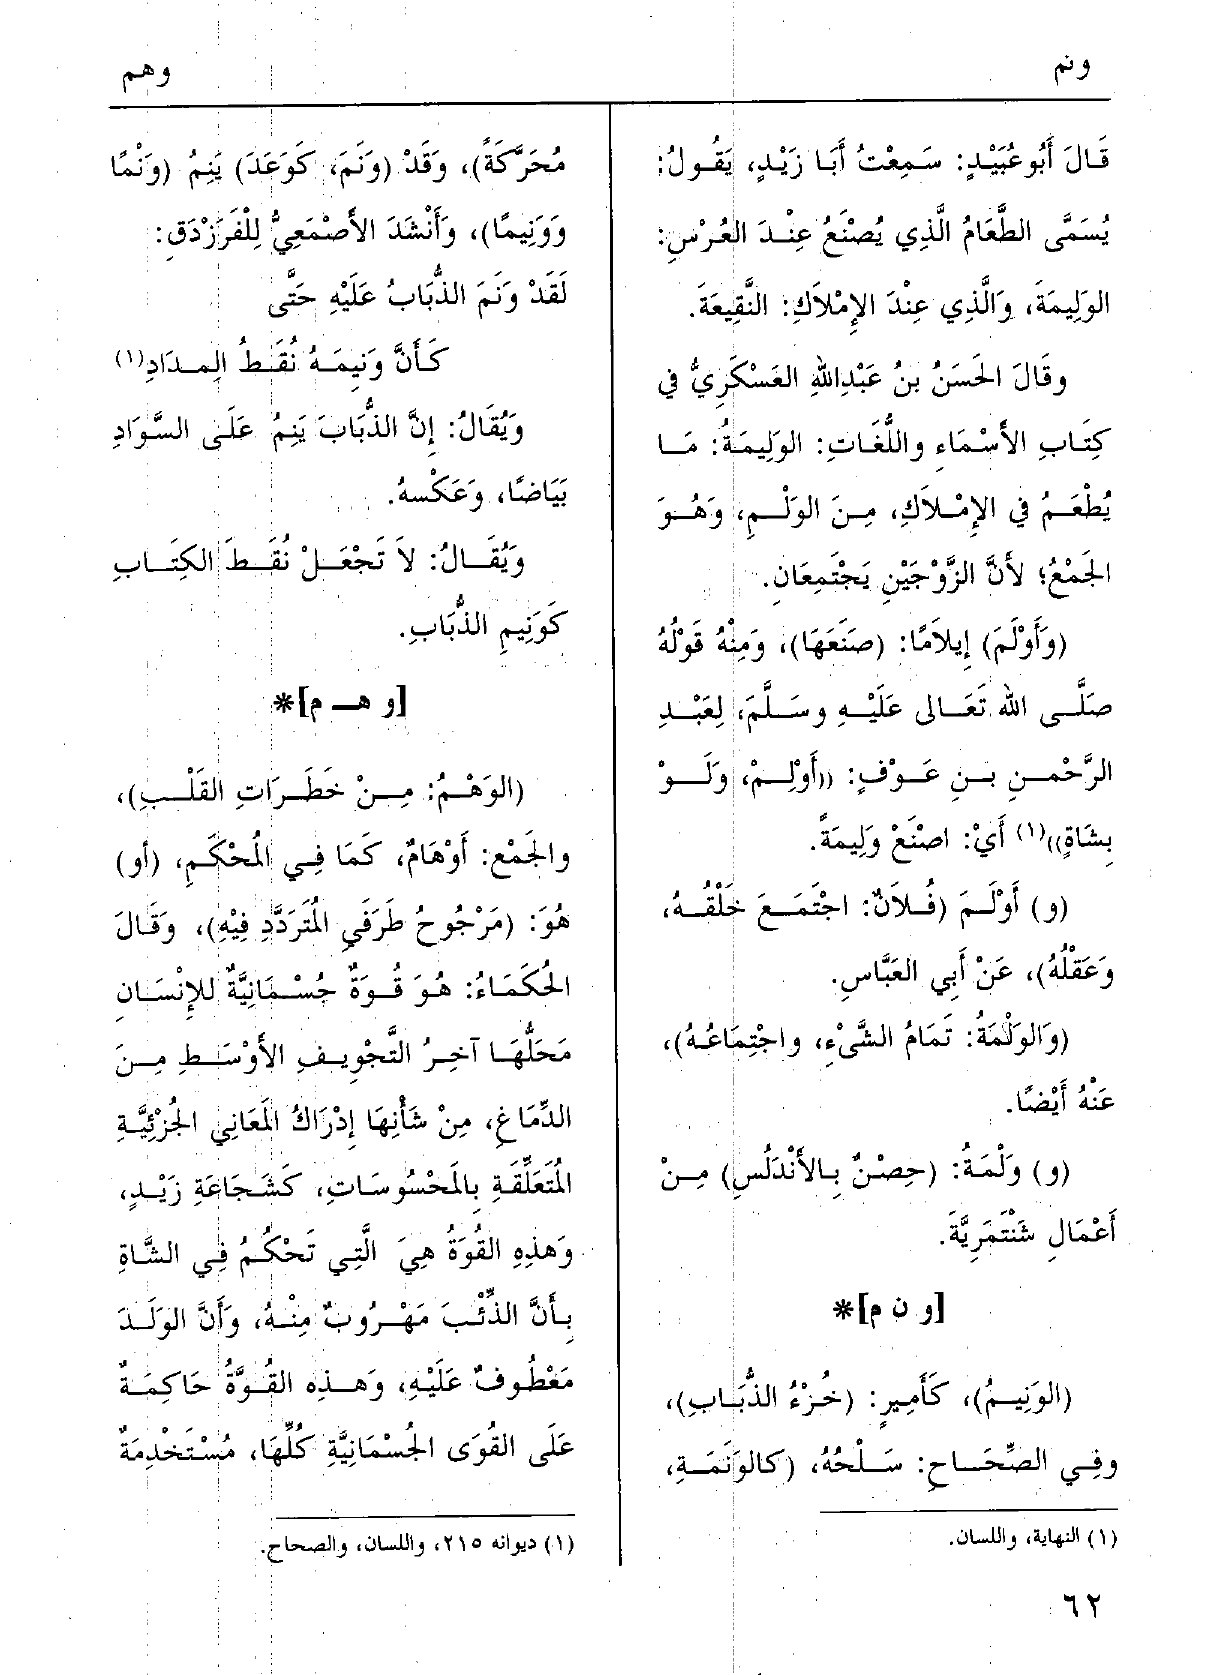 ونم
وهم
قَالَ أَبُو عُبَيْدٍ: سَمِعْتُ أَبَا زَيْدٍ، يَقُولُ:
يُسَمَّى الطَّعَامُ الَّذِي يُصْنَعُ عِنْدَ العُرْسِ:
الوَلِيمَةَ، وَالَّذِي عِنْدَ الإِمْلاَكِ: النَّقِيعَةَ.
وقَالَ الحَسَنُ بنُ عَبْدِاللهِ العَسْكَرِيُّ في
كِتَابِ الأَسْمَاءِ واللُّغَاتِ: الوَلِيمَةُ: مَا
يُطْعَمُ في الإِمْلاكِ، مِنَ الوَلْمِ، وَهُوَ
الجَمْعُ؛ لأَنَّ الزَّوْجَيْنِ يَجْتَمِعَانِ.
(وَأَوْلَمَ) إِيلاَمًا: (صَنَعَهَا)، وَمِنْهُ قَوْلُهُ
صَلَّى اللهُ تَعَالى عَلَيْهِ وسَلَّمَ، لِعَبْدِ
الرَّحْمنِ بنِ عَوْفٍ: ((أَوْلِمْ، وَلَوْ
بِشَاةٍ))(١) أَيْ: اصْنَعْ وَلِيمَةً.
(و) أَوْلَمَ (فُلاَنٌ: اجْتَمَعَ خَلْقُهُ،
وَعَقْلُهُ)، عَنْ أَبِي العَبَّاسِ.
(وَالوَلْمَةُ: تَمَامُ الشَّيْءِ، واجْتِمَاعُهُ)،
عَنْهُ أَيْضًا.
(و) وَلْمَةُ: (حِصْنٌ بِالأَنْدَلُسِ) مِنْ
أَعْمَالِ شَنْتَمَرِيَّةَ.
[و ن م]*
(الوَنِيمُ)، كَأَمِيرٍ: (خُرْءُ الذُّبَابِ)،
وفِي الصِّحَاحِ: سَلْحُهُ، (كالوَنَمَةِ،
(١) النهاية، واللسان.
مُحَرَّكَةً)، وَقَدْ (وَنَمَ، كَوَعَدَ) يَنِمُ (وَنْمًا
وَوَنِيمًا)، وَأَنْشَدَ الأَصْمَعِيُّ لِلْفَرَزْدَقِ:
لَقَدْ وَنَمَ الذُّبَابُ عَلَيْهِ حَتَّى
كَأَنَّ وَنِيمَهُ نُقَطُ المِدَادِ(١)
وَيُقَالُ: إِنَّ الذُّبَابَ يَنِمُ عَلَى السَّوَادِ
بَيَاضًا، وَعَكْسهُ.
وَيُقَالُ: لاَ تَجْعَلْ نُقَطَ الكِتَابِ
كَوَنِيمِ الذُّبَابِ.
[و هـ م]*
(الوَهْمُ: مِنْ خَطَرَاتِ القَلْبِ)،
والجَمْع: أَوْهَامٌ، كَمَا فِي المُحْكَمِ، (أو)
هُوَ: (مَرْجُوحُ طَرَفَيِ المُتَرَدَّدِ فِيْهِ)، وَقَالَ
الحُكَمَاءُ: هُوَ قُوَةٌ جُسْمَانِيَّةٌ لِلإِنْسَانِ
مَحَلُّهَا آخِرُ التَّجْوِيفِ الأَوْسَطِ مِنَ
الدِّمَاغِ، مِنْ شَأْنِهَا إِدْرَاكُ المَعَانِي الجُزْئِيَّةِ
المُتَعَلِّقَةِ بِالمَحْسُوسَاتِ، كَشَجَاعَةِ زَيْدٍ،
وَهذِهِ القُوَةُ هِيَ الَّتِي تَحْكُمُ فِي الشَّاةِ
بِأَنَّ الذِّئْبَ مَهْرُوبٌ مِنْهُ، وَأَنَّ الوَلَدَ
مَعْطُوفٌ عَلَيْهِ، وَهذِه القُوَّةُ حَاكِمَةٌ
عَلَى القُوَى الجُسْمَانِيَّةِ كُلِّهَا، مُسْتَخْدِمَةٌ
(١) ديوانه ٢١٥، واللسان، والصحاح.
٦٢